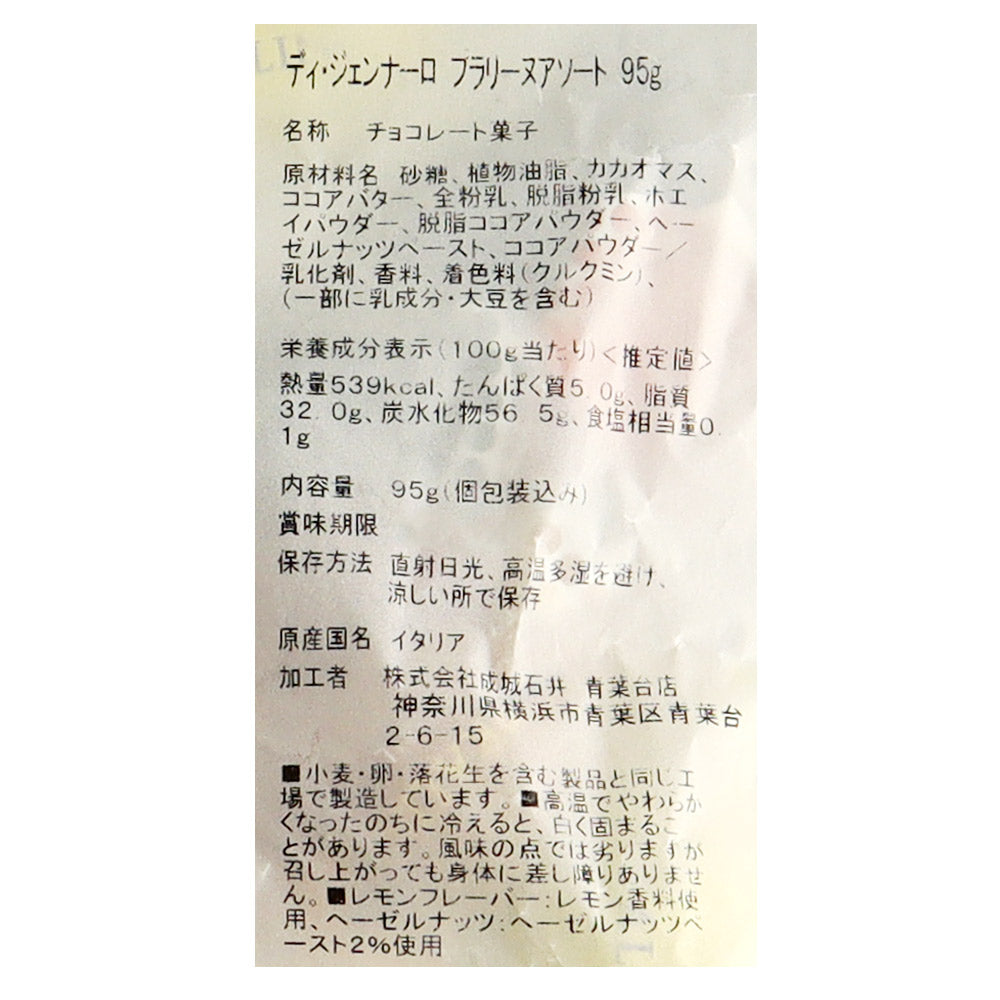 ディ・ジェンナーロ プラリーヌアソート 95g
名称 チョコレート菓子
原材料名 砂糖、植物油脂、カカオマス、
ココアバター、全粉乳、脱脂粉乳、ホエ
イパウダー、脱脂ココアパウダー、ヘー
ゼルナッツペースト、ココアパウダー／
乳化剤、香料、着色料(クルクミン)、
(一部に乳成分・大豆を含む)
栄養成分表示(100g当たり)<推定値>
熱量539kcal、たんぱく質5.0g、脂質
32.0g、炭水化物56.5g、食塩相当量0.
1g
内容量 95g(個包装込み)
賞味期限
保存方法 直射日光、高温多湿を避け、
涼しい所で保存
原産国名 イタリア
加工者 株式会社成城石井 青葉台店
神奈川県横浜市青葉区青葉台
2-6-15
■小麦・卵・落花生を含む製品と同じ工
場で製造しています。■高温でやわらか
くなったのちに冷えると、白く固まるこ
とがあります。風味の点では劣りますが
召し上がっても身体に差し障りありませ
ん。■レモンフレーバー:レモン香料使
用、ヘーゼルナッツ:ヘーゼルナッツペ
ースト2%使用